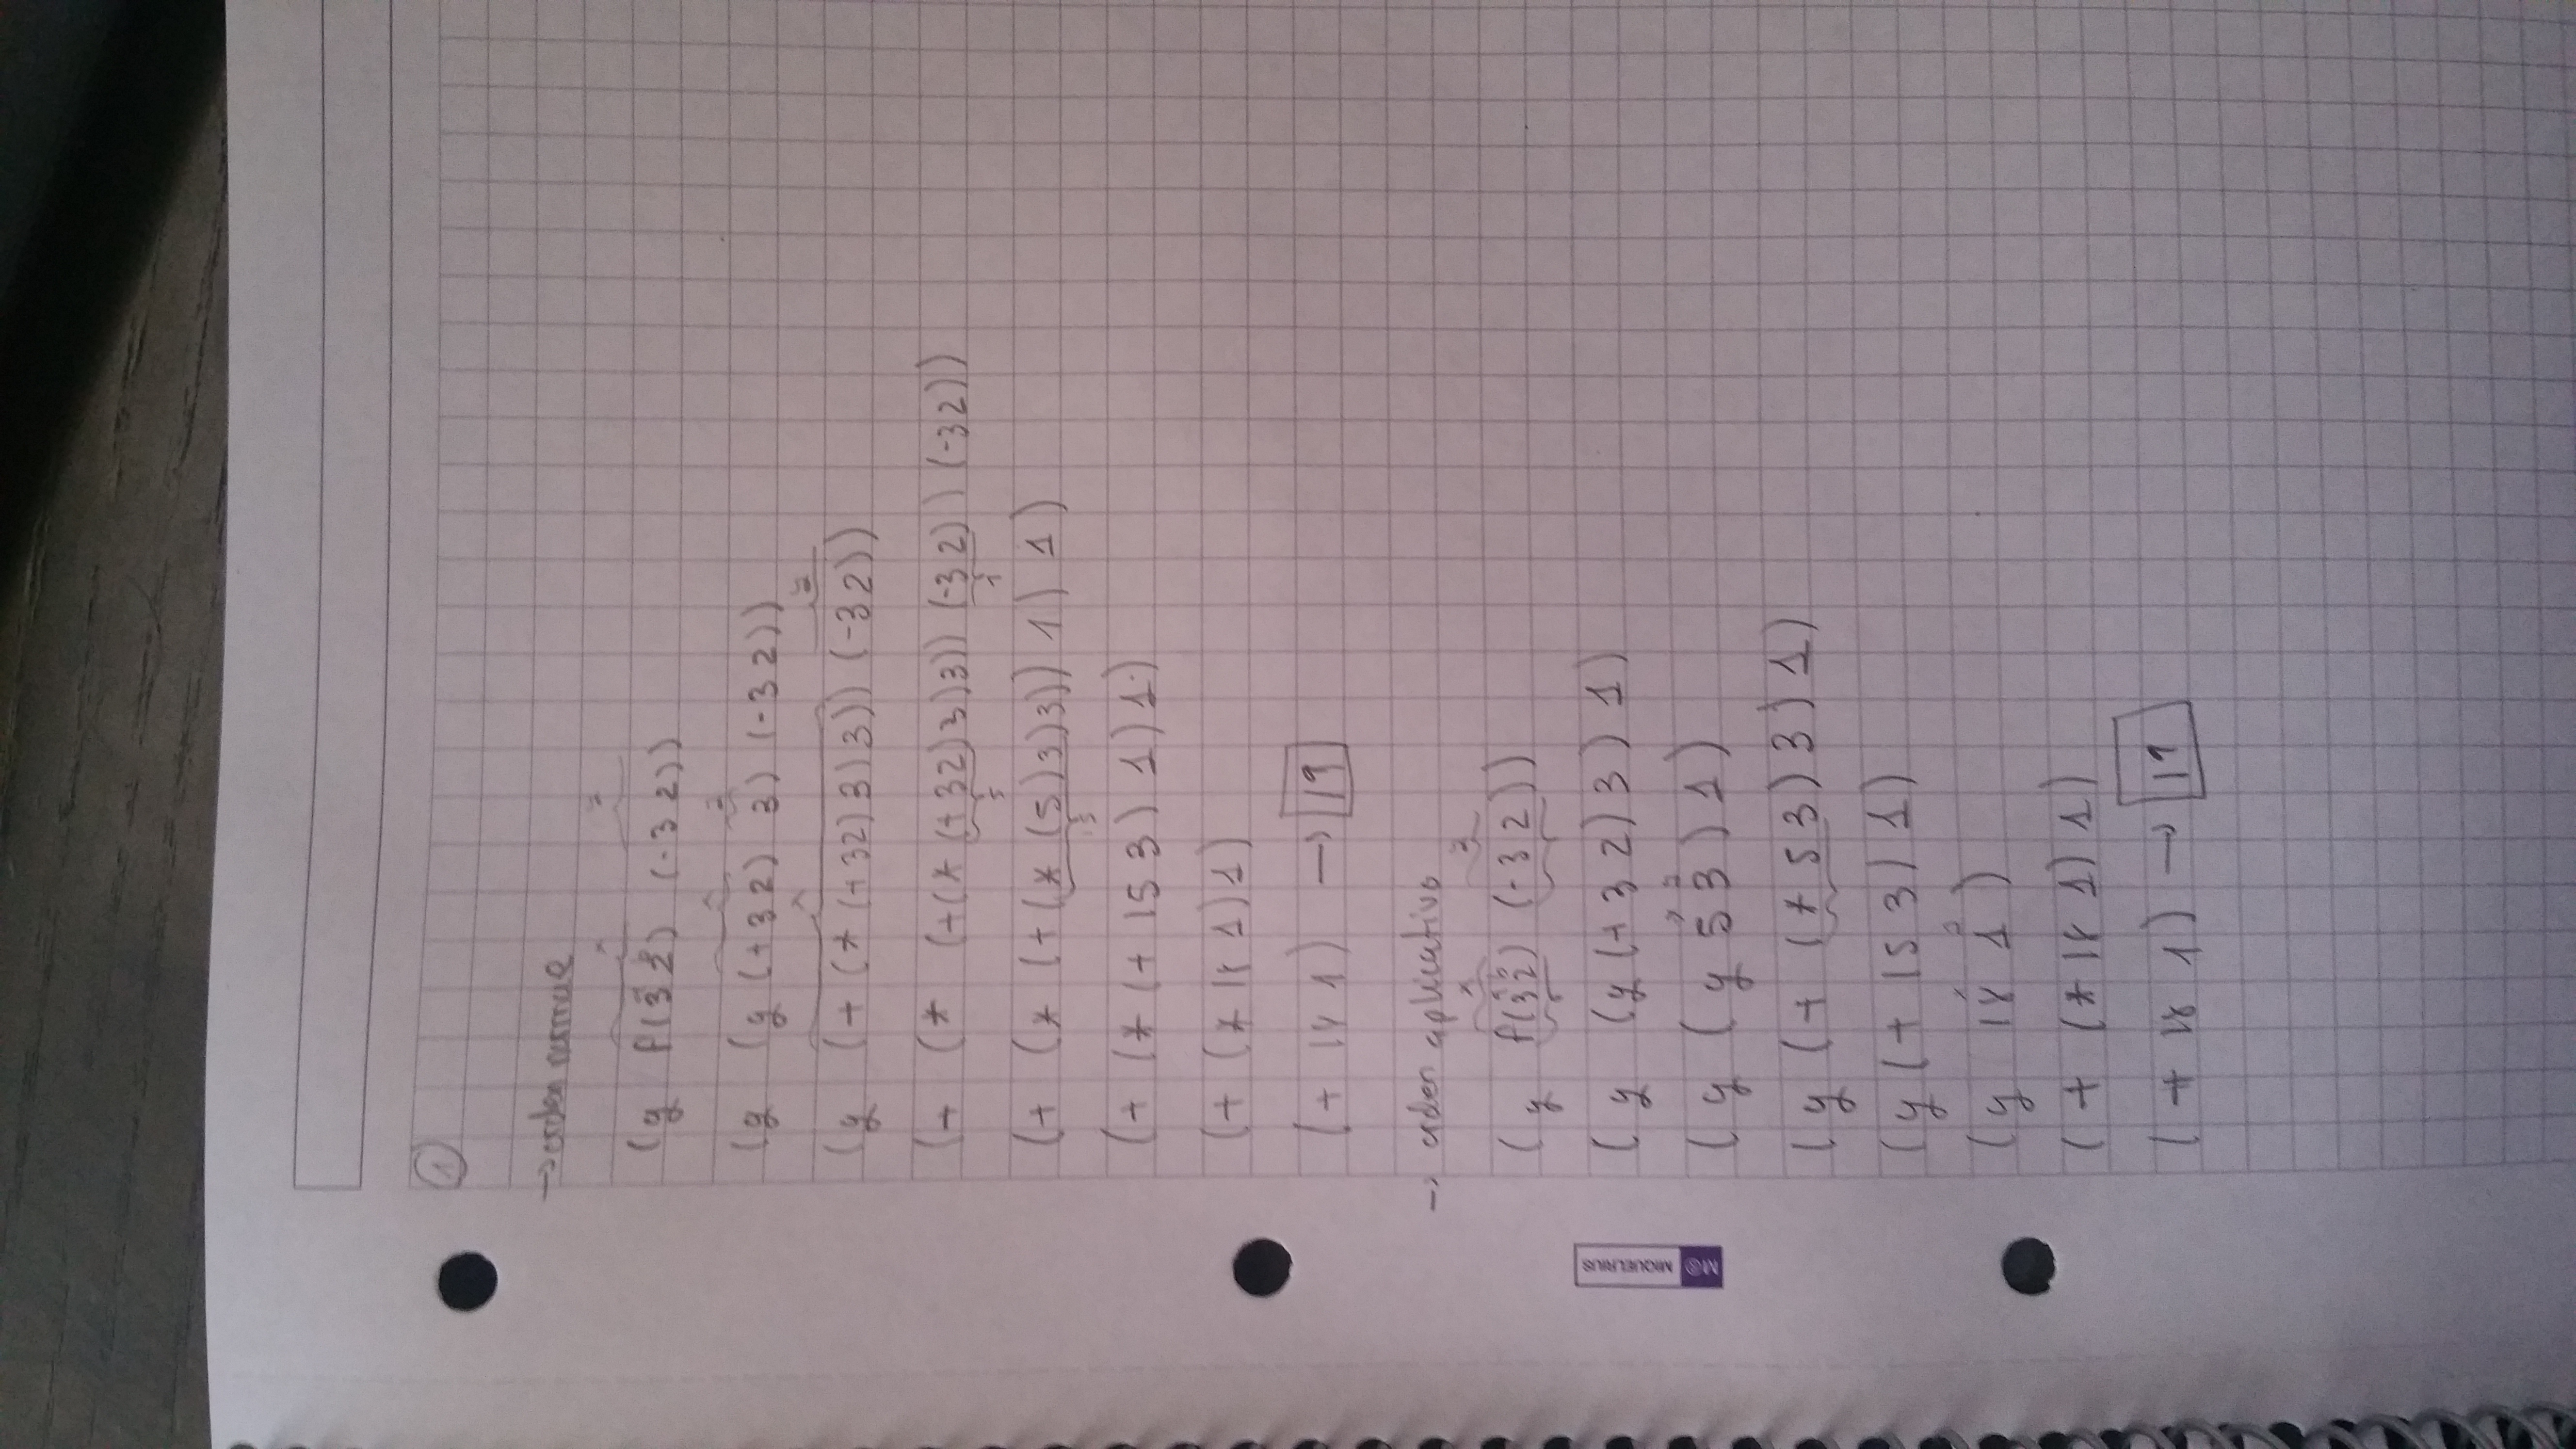 ①
→ orden normal
(g f(3 2) (-3 2))
(g (g (+ 3 2) 3) (-3 2))
(g (+ (* (+ 32) 3) 3)) (-32))
(+ (* (+ (* (+ 32) 3) 3)) (-32)) (-32))
(+ (* (+ (* (5) 3) 3)) 1) 1)
(+ (* (+ 15 3) 1) 1)
(+ (* 18 1) 1)
(+ 18 1) → 19
→ orden aplicativo
(g f(32) (-32))
(g (g (+ 3 2) 3) 1)
(g (g 5 3) 1)
(g (+ (* 5 3) 3) 1)
(g (+ 15 3) 1)
(g 18 1)
(+ (* 18 1) 1)
(+ 18 1) → 19
MIQUELRIUS